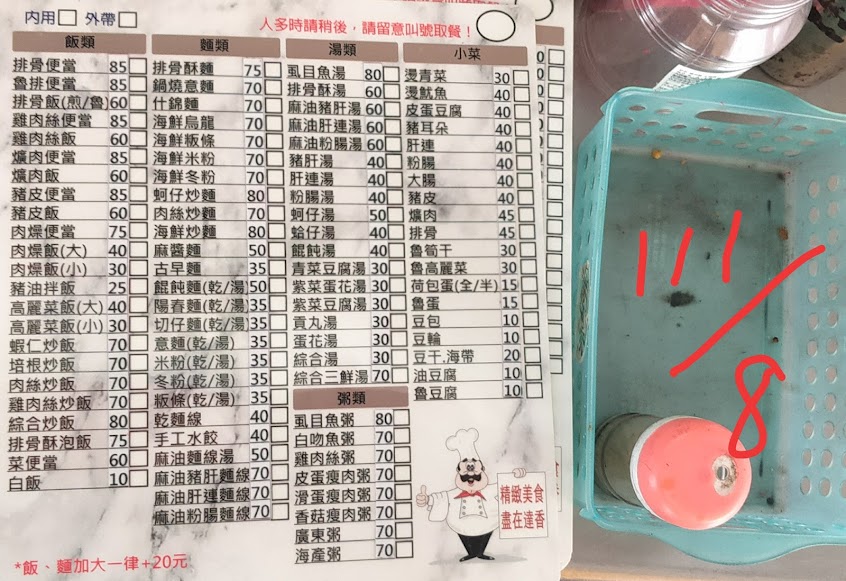 內用 外帶
人多時請稍後，請留意叫號取餐！
飯類
排骨便當 85
魯排便當 85
排骨飯(煎/魯) 60
雞肉絲便當 85
雞肉絲飯 60
爌肉便當 85
爌肉飯 60
豬皮便當 85
豬皮飯 60
肉燥便當 75
肉燥飯(大) 40
肉燥飯(小) 30
豬油拌飯 25
高麗菜飯(大) 40
高麗菜飯(小) 30
蝦仁炒飯 70
培根炒飯 70
肉絲炒飯 70
雞肉絲炒飯 70
綜合炒飯 80
排骨酥泡飯 75
菜便當 60
白飯 10
麵類
排骨酥麵 75
鍋燒意麵 70
什錦麵 70
海鮮烏龍 70
海鮮粄條 70
海鮮米粉 70
海鮮冬粉 70
蚵仔炒麵 80
肉絲炒麵 70
海鮮炒麵 80
麻醬麵 50
古早麵 35
餛飩麵(乾/湯) 50
陽春麵(乾/湯) 35
切仔麵(乾/湯) 35
意麵(乾/湯) 35
米粉(乾/湯) 35
冬粉(乾/湯) 35
粄條(乾/湯) 35
乾麵線 40
手工水餃 40
麻油麵線湯 50
麻油豬肝麵線 70
麻油肝連麵線 70
麻油粉腸麵線 70
湯類
虱目魚湯 80
排骨酥湯 60
麻油豬肝湯 60
麻油肝連湯 60
麻油粉腸湯 60
豬肝湯 40
肝連湯 40
粉腸湯 40
蚵仔湯 50
蛤仔湯 40
餛飩湯 40
青菜豆腐湯 30
紫菜蛋花湯 30
紫菜豆腐湯 30
貢丸湯 30
蛋花湯 30
綜合湯 30
綜合三鮮湯 70
粥類
虱目魚粥 80
白吻魚粥 70
雞肉絲粥 70
皮蛋瘦肉粥 70
滑蛋瘦肉粥 70
香菇瘦肉粥 70
廣東粥 70
海產粥 70
小菜
燙青菜 30
燙魷魚 40
皮蛋豆腐 40
豬耳朵 40
肝連 40
粉腸 40
大腸 40
豬皮 40
爌肉 45
排骨 45
魯筍干 30
魯高麗菜 30
荷包蛋(全/半) 15
魯蛋 15
豆包 10
豆輪 10
豆干.海帶 20
油豆腐 10
魯豆腐 10
精緻美食
盡在達香
*飯、麵加大一律+20元
111/8